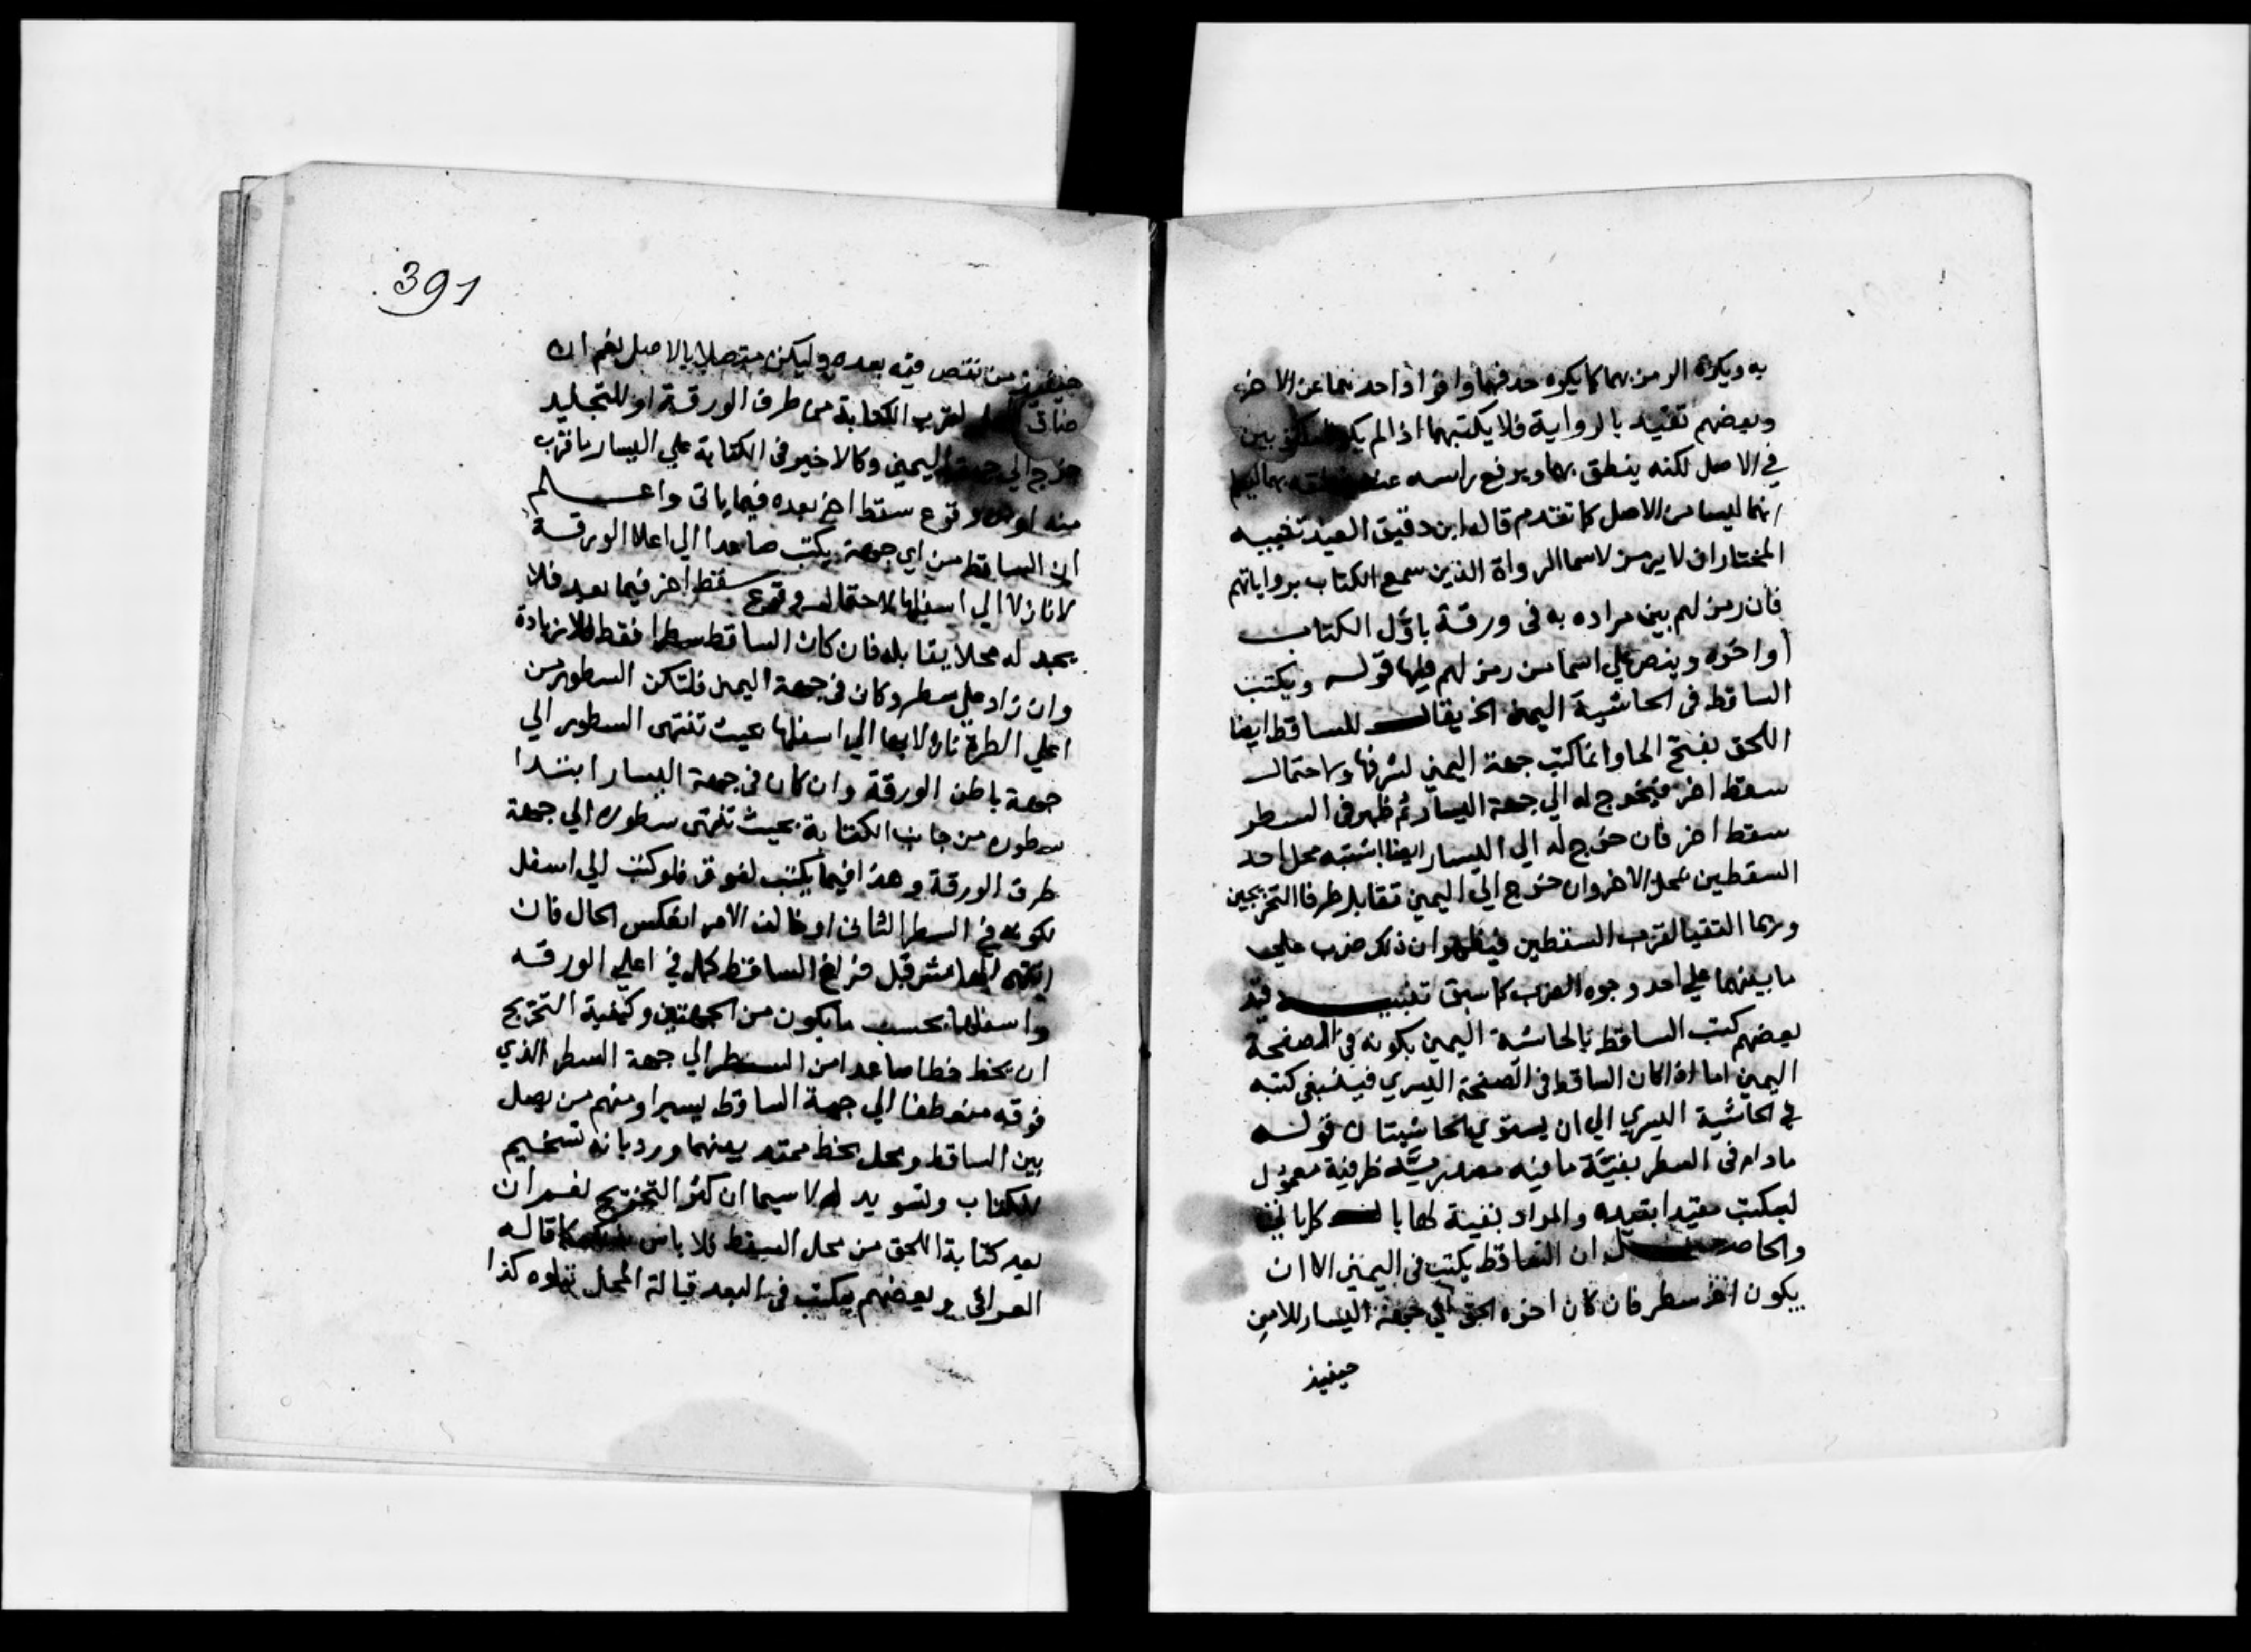 به ويكره الرمز بهما كما يكره حذفهما وافراد احدهما عن الاخر
وبعضهم تقيد بالرواية فلا يكتبهما اذا لم يكونا بين
في الاصل لكنه ينطق بهما ويرفع راسه عند بهما ليعلم
انهما ليسا من الاصل كما تقدم قاله ابن دقيق العيد تنبيه
المختار ان لا يرمز لاسما الرواة الذين سمع الكتاب برواياتهم
فان رمز لهم بين مراده به فى ورقة باوّل الكتاب
أو اخره وينص علي اسما من رمز لهم فيها قولـه ويكتب
الساقط فى الحاشية اليمنى الخ يقال للساقط ايضا
اللحق بفتح الحا وانما كتب جهة اليمني لشرفها ولاحتمال
سقط اخر فيخرج له الي جهة اليسار ثم ظهر فى السطر
سقط اخر فان خرج له الي اليسار ايضا اشتبه محل احد
السقطين بمحل الاخر وان خرج الي اليمين تقابل طرفا التخريجين
وربما التقيا لقرب السقطين فيظهر ان ذلك ضرب علي
ما بينهما علي احد وجوه الضرب كما سبق تنبيـه قيد
بعضهم كتب الساقط بالحاشية اليمين بكونه في الصفحة
اليمين اما اذا كان الساقط فى الصفحة اليسري فينبغى كتبه
في الحاشية اليسري الي ان يستوي الحاشيتان قولـه
ما دام فى السطر بقيّة ما فيه مصدريّة ظرفية معمول
ليكتب مقيدا بقيده والمراد بقية لها بال كما ياتي
والحاصـل ان الساقط يكتب فى اليمنى الا ان
يكون اخر سطر فان كان اخره الحق الي جهة اليسار للامن
حينيذ
391
حينيذ من نقص فيه بعده وليكن متصلا بالاصل نعم ان
ضاق لقرب الكتابة من طرف الورقة او للتجليد
خرج الي جهة اليمين وكالاخير فى الكتابة علي اليسار ما قرب
منه وقوع سقط اخر بعده فيما ياتى واعـلـم
ان الساقط من اي جهة يكتب صاعدا الي اعلا الورقة
لا نازلا الي اسفلها لاحتمال وقوع سقط اخر فيما بعد فلا
يجد له محلا يقابله فان كان الساقط سطرا فقط بلا زيادة
وان زاد علي سطر وكان فى جهة اليمين فلتكن السطور من
اعلي الطرة نازلا بها الي اسفلها بحيث تنتهى السطور الي
جهة باطن الورقة وان كان فى جهة اليسار ابتدا
سطوره من جانب الكتابة بحيث تنتهى سطوره الي جهة
طرف الورقة وهذا فيما يكتب لفوق فلو كتب الي اسفل
لكونه في السطر الثاني او خالف الامر انعكس الحال فان
انتهى الهامش قبل فراغ الساقط كمله في اعلي الورقة
واسفلها بحسب ما يكون من الجهتين وكيفية التخريج
ان يخط خطا صاعدا من السطر الي جهة السطر الذي
فوقه منعطفا الي جهة الساقط يسيرا ومنهم من يصل
بين الساقط ومحل بخط ممتد بينهما ورد بانه تسخيم
للكتاب وتسويد له لا سيما ان كثر التخريج نعم ان
بعد كتابة اللحق من محل السقط فلا باس كما قاله
العراقي وبعضهم يكتب فى البعد قبالة المحل يتلوه كذا